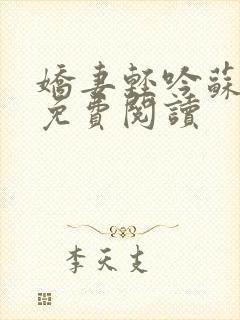 嬌妻輕吟蘇
免費閱讀
李天支